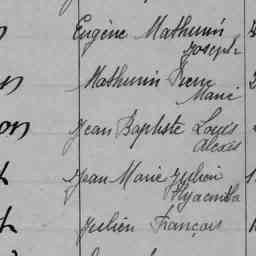 Eugène Mathurin
Joseph
Mathurin Pierre
Marie
Jean Baptiste Louis
Alexis
Jean Marie Julien
Hyacinthe
Julien François